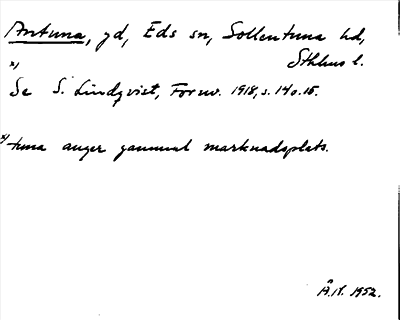 Antuna, gd, Eds sn, Sollentuna hd,
Sthlms l.
x)
Se S. Lindqvist, Fornv. 1918, s. 14 o. 15.
x) tuna anger gammal marknadsplats.
Å.N. 1952.